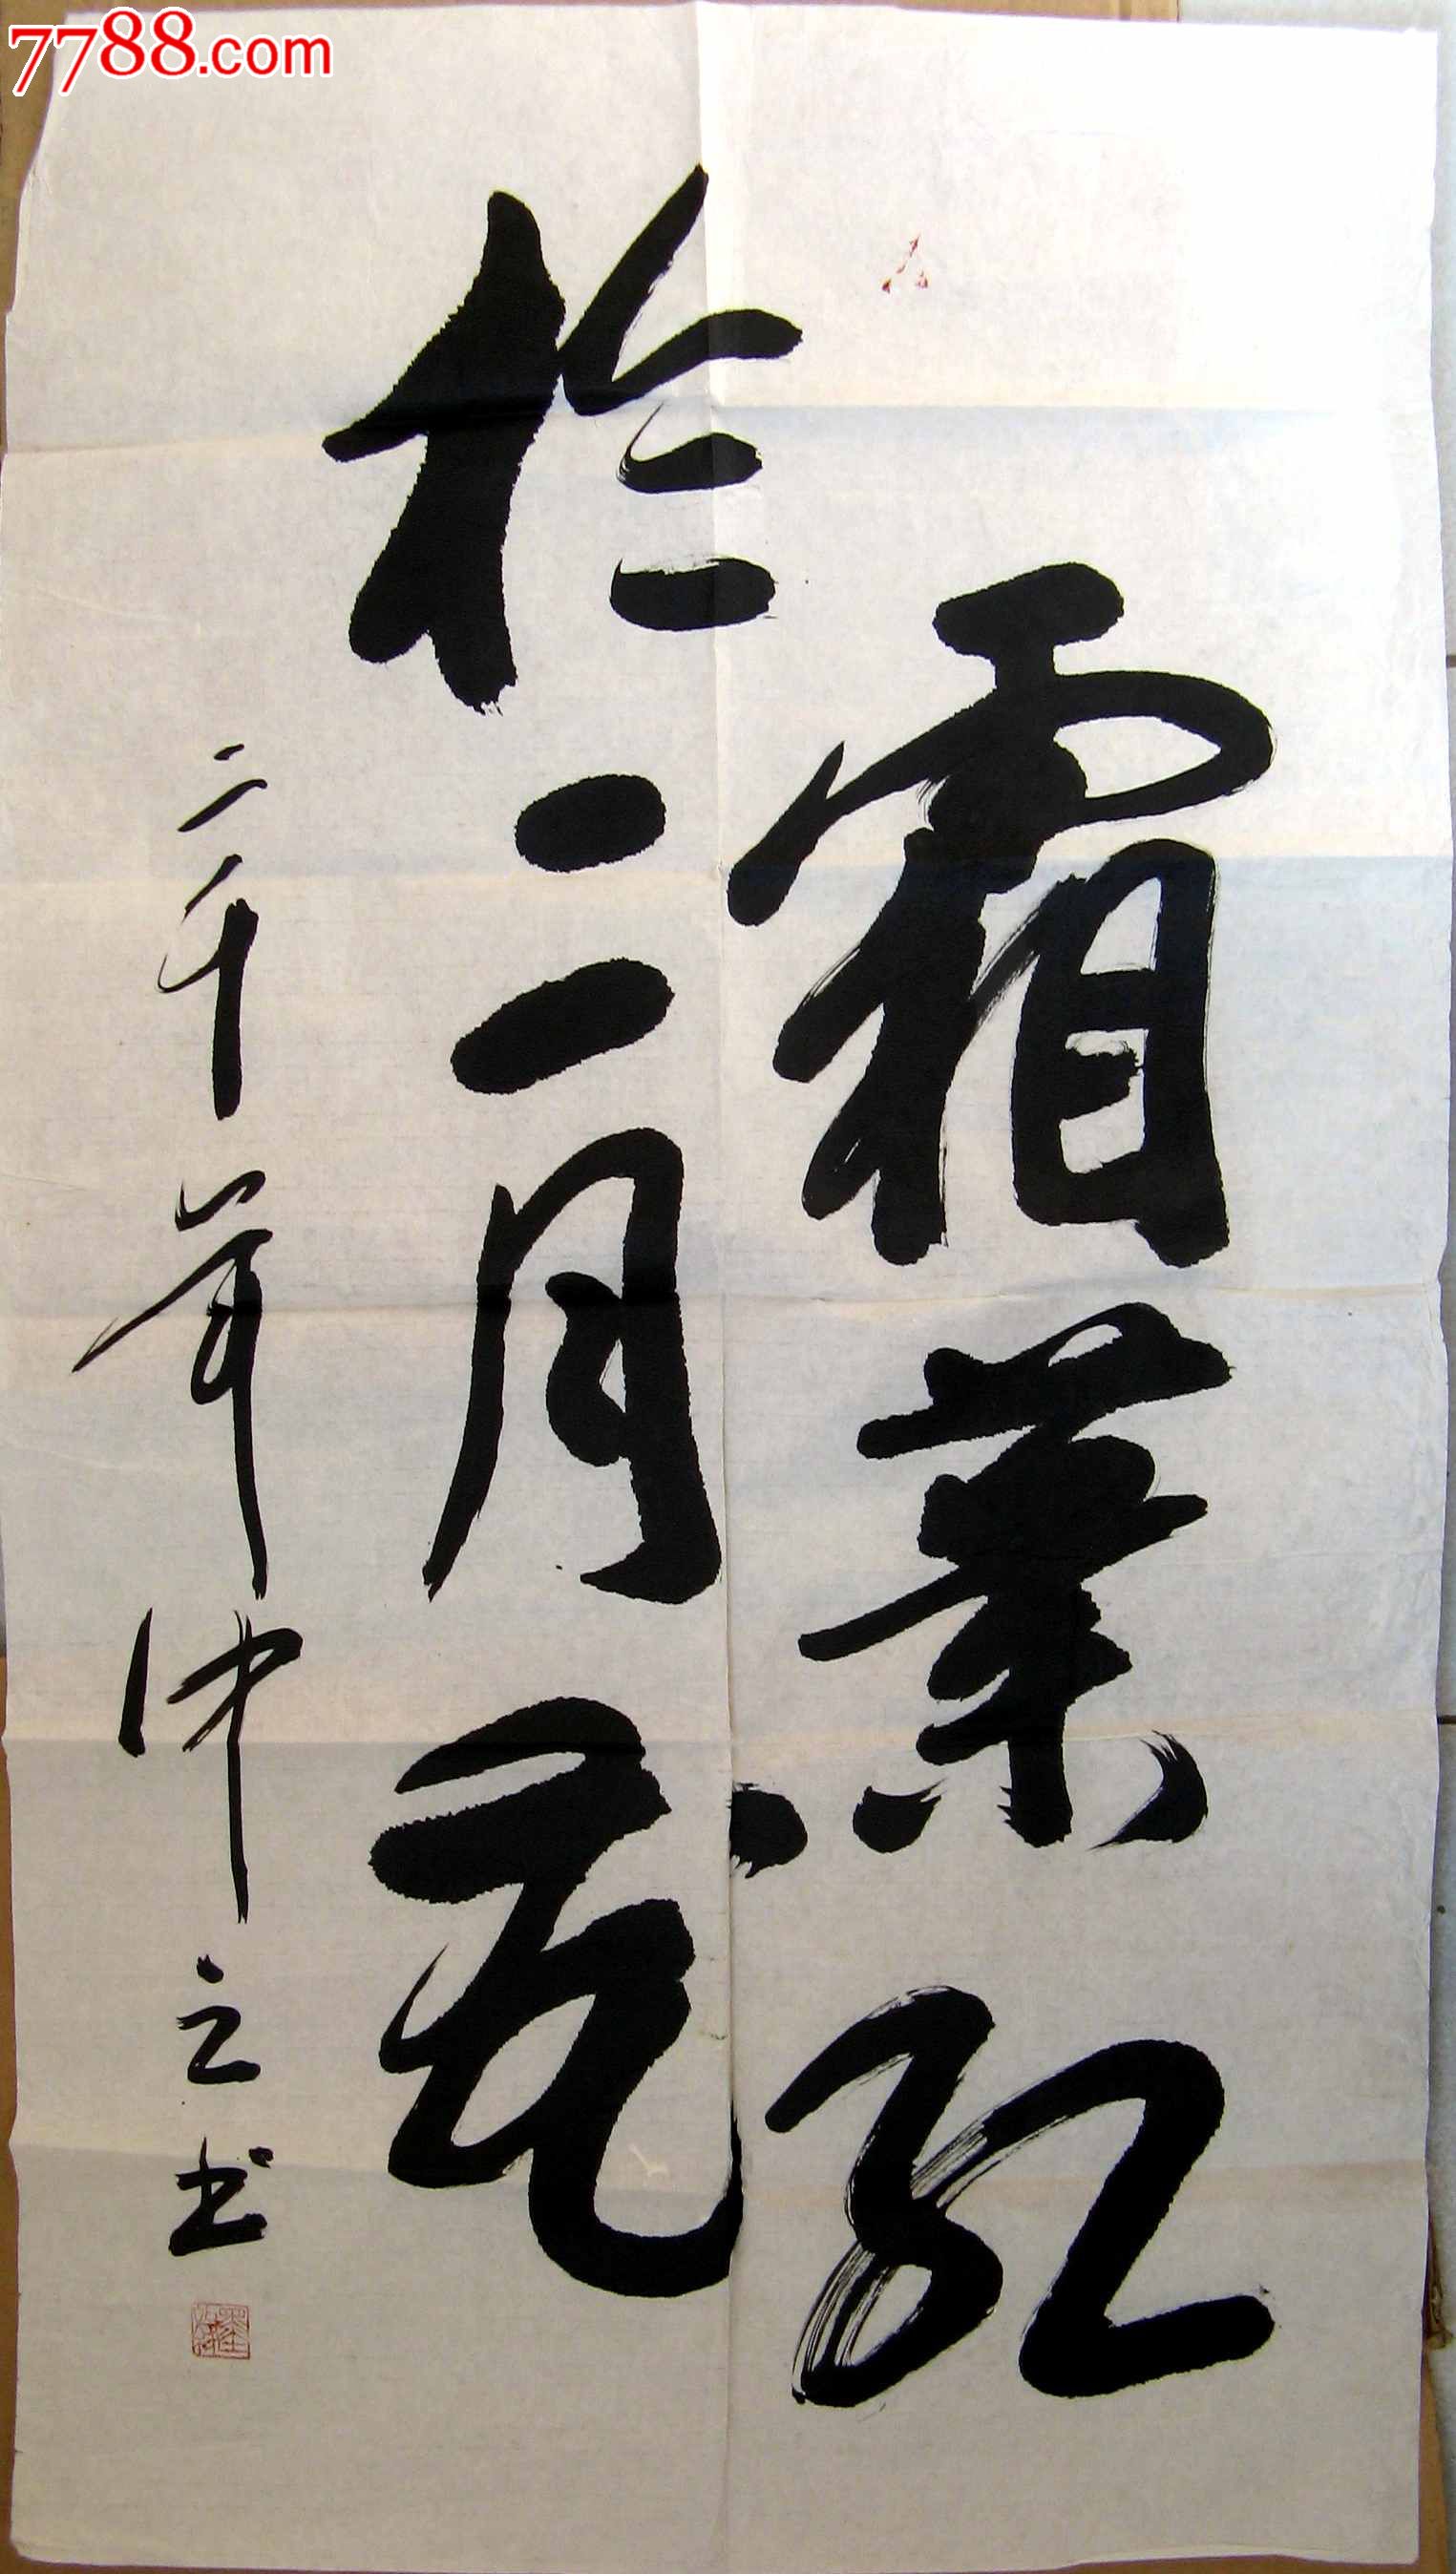 7788.com
霜葉红
於二月花
二千年仲立书